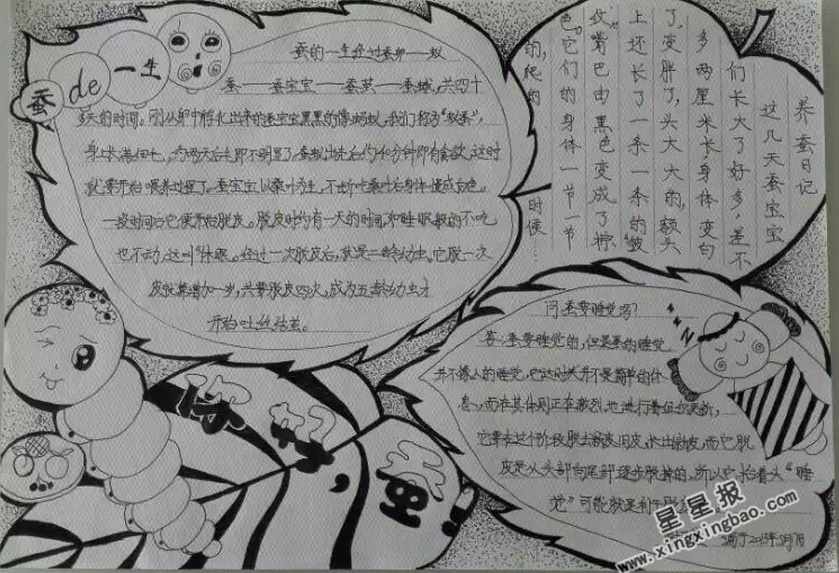 蚕de一生
蚕的一生经过蚕卵——蚁
蚕——蚕宝宝——蚕茧——蚕蛾,共四十
多天的时间。刚从卵中孵化出来的蚕宝宝黑黑的像蚂蚁,我们称为“蚁蚕”,
身上长满细毛,约两天后毛即不明显了。蚕蚁出壳后约40分钟即有食欲,这时
就要开始喂养过程了。蚕宝宝以桑叶为生,不断吃桑叶后身体慢成白色。
一段时间后它便开始脱皮。脱皮时约有一天的时间,如睡眠般的不吃
也不动,这叫“休眠”。经过一次脱皮后,就是二龄幼虫。它脱一次
皮就算增加一岁,共要脱皮四次,成为五龄幼虫才
开始吐丝结茧。
养蚕日记
这几天蚕宝宝
们长大了好多,差不
多两厘米长,身体变白
了,变胖了,头大大的,额头
上还长了一条一条的“皱
纹”。嘴巴由黑色变成了棕
色。它们的身体一节一节
的,爬的时候……
问:蚕要睡觉吗?
答:蚕要睡觉的,但是蚕的睡觉
并不像人的睡觉,它这时候并不是简单的休
息,而在其体则正在激烈地进行着
它要在这个阶段脱去旧皮,长出新皮,而它脱
皮是从头部向尾部逐步脱掉的,所以它抬着头“睡
觉”可能就是利于脱
2015年5月7日
星星报
www.xingxingbao.com